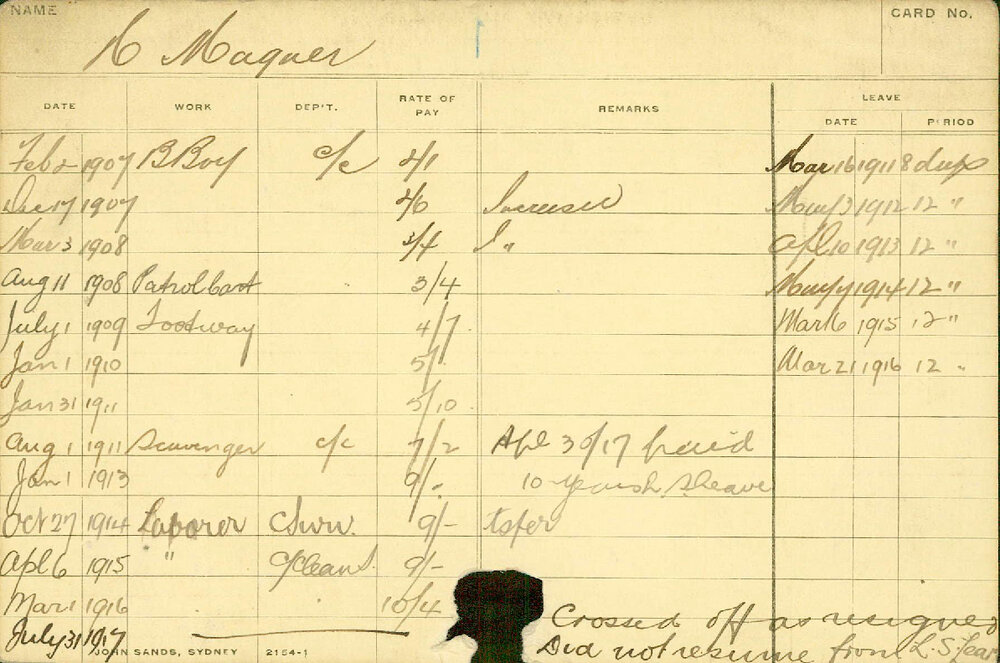 NAME CARD No.
Maguer
DATE WORK DEP'T. RATE OF PAY REMARKS LEAVE
DATE PERIOD
Feb 2 1907 B Boy C/C 2/1 Mar 16 1911 8 days
Dec 17 1907 2/6 Increased May 3 1912 12 "
Mar 3 1908 3/4 I " Apl 10 1913 12 "
Aug 11 1908 Patrol cart 3/4 May 1914 12 "
July 1 1909 Footway 4/7 Mar 6 1915 12 "
Jan 1 1910 5/ Mar 21 1916 12 "
Jan 31 1911 5/10
Aug 1 1911 Scavenger C/C 7/2 Apl 30/17 paid
Jan 1 1913 9/- 10 Sleave
Oct 27 1914 Laborer 9/- tsfer
Apl 6 1915 " C/Cleans. 9/-
Mar 1 1916 10/4 Crossed off as resigned
July 31 1917 Did not resume from L. S.
JOHN SANDS, SYDNEY 2154-1